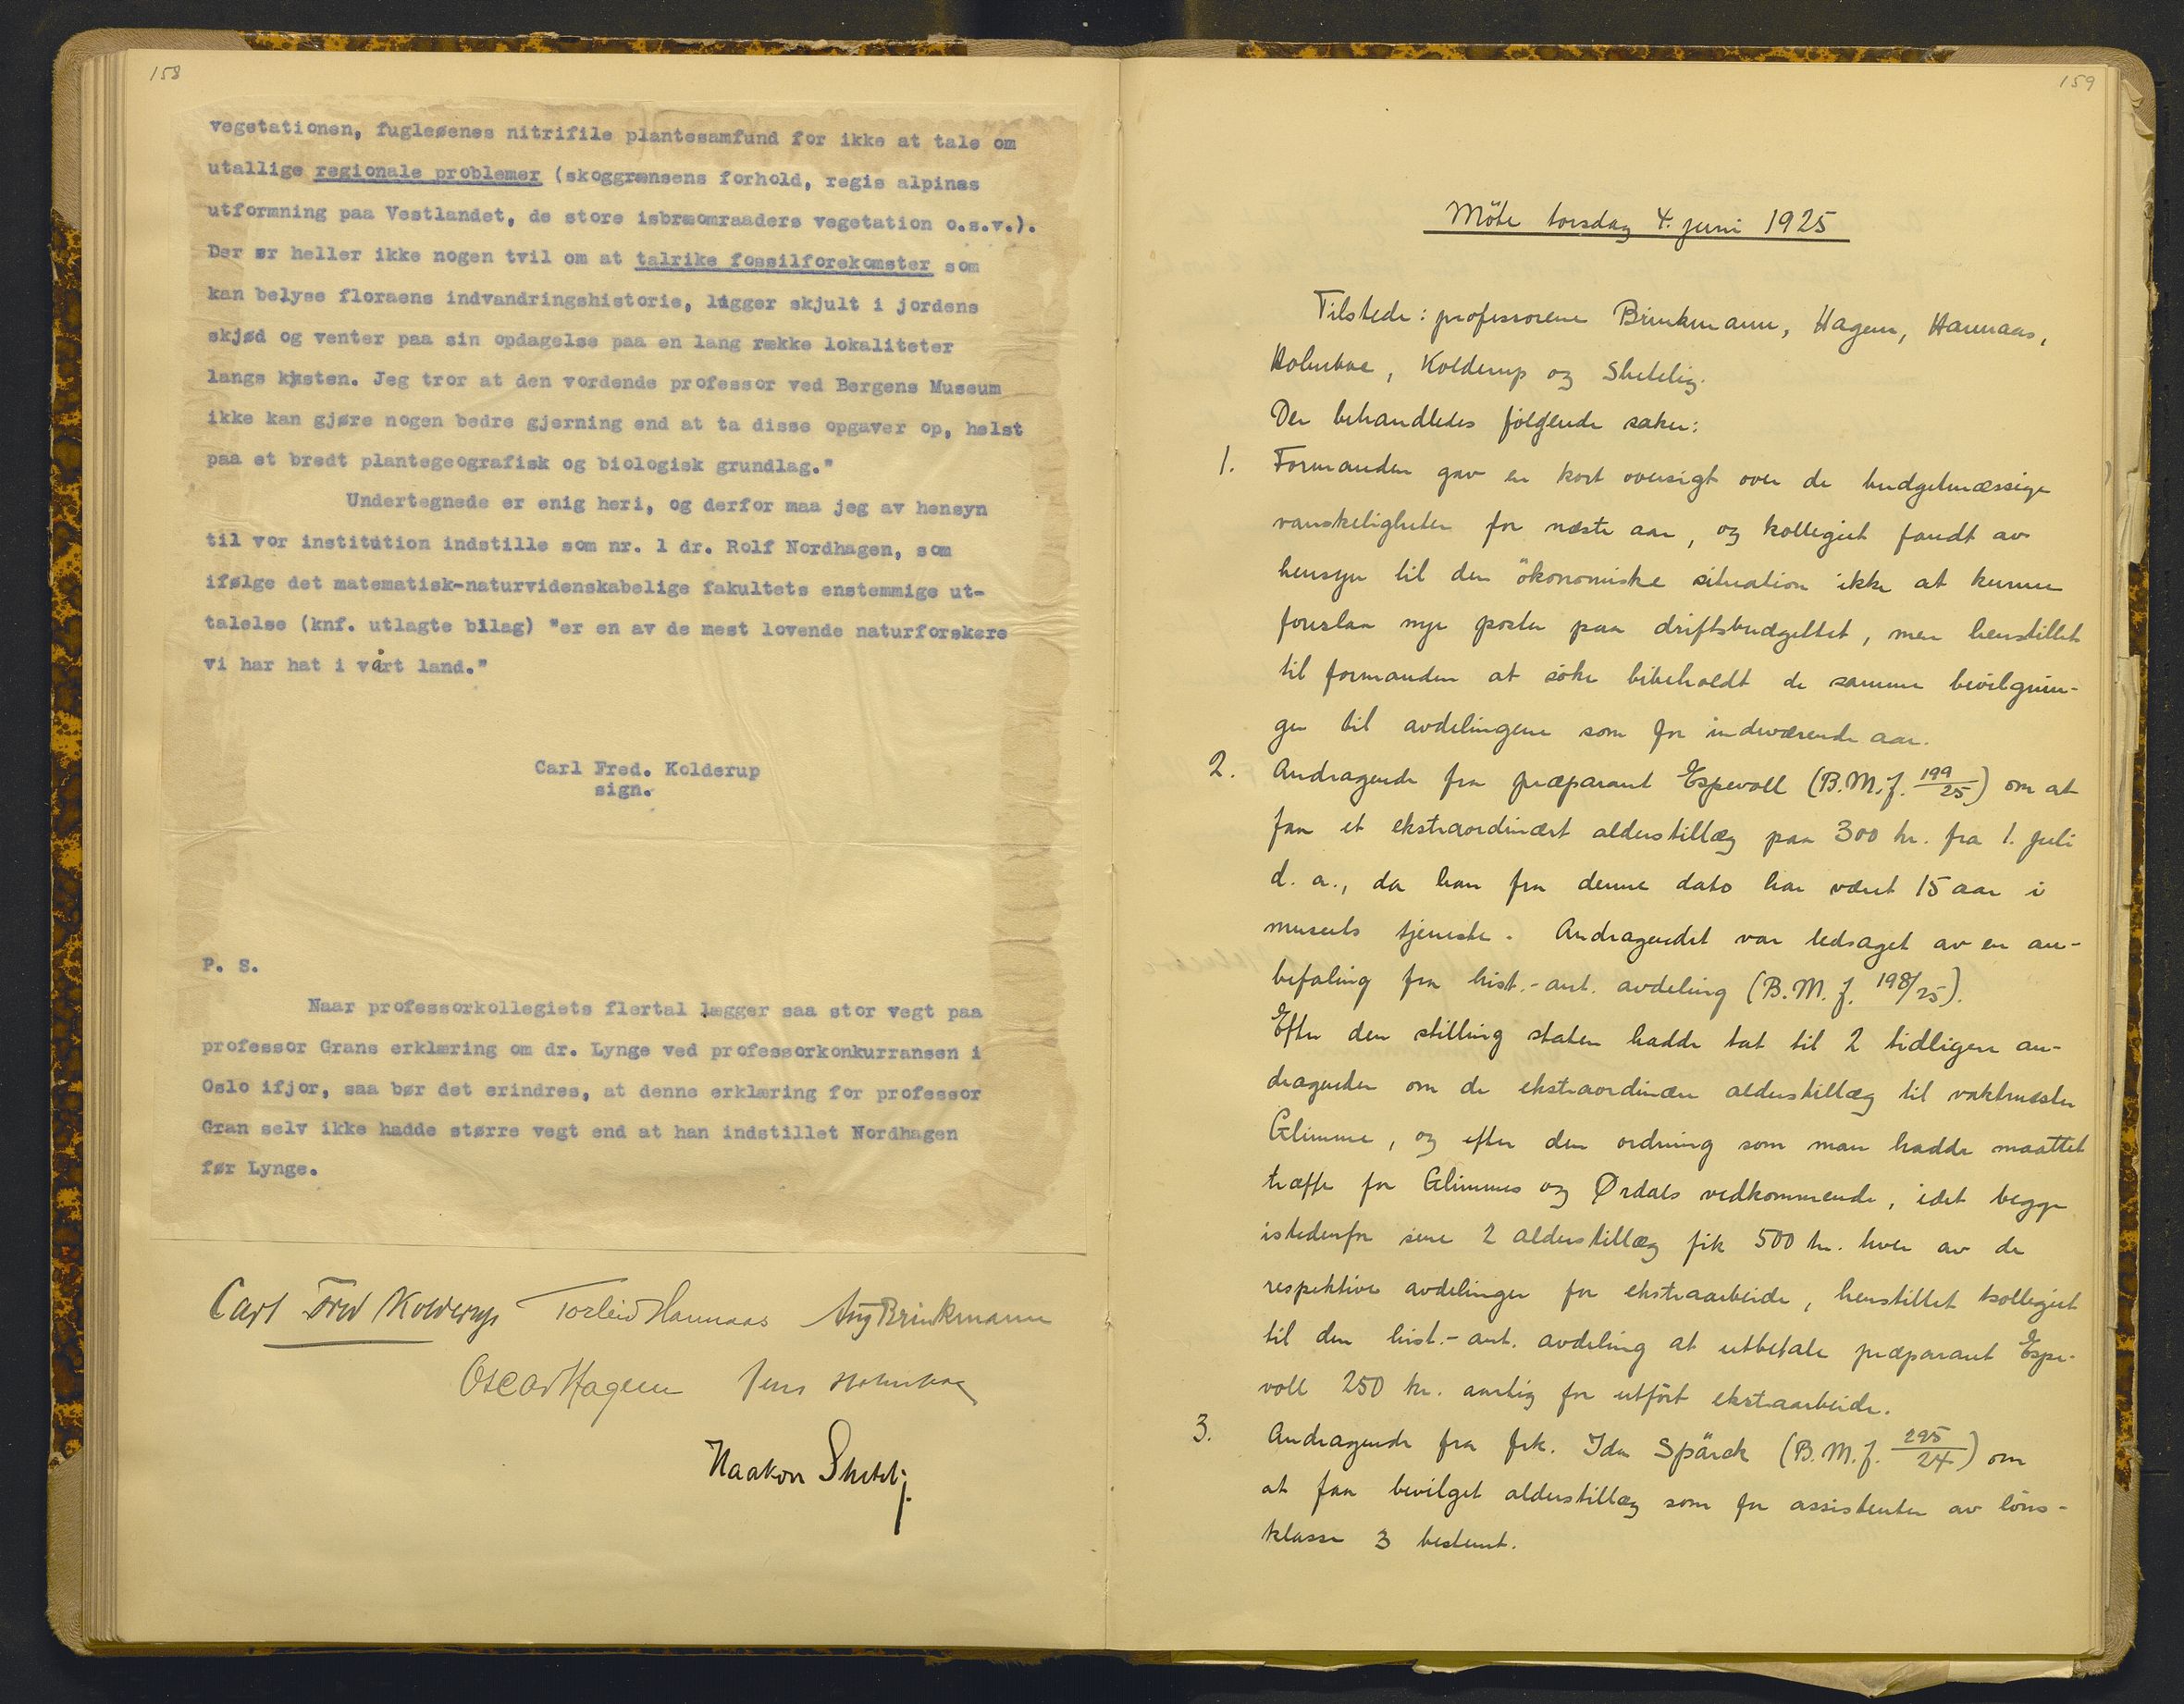 158
vegetationen, fugleøenes nitrifile plantesamfund for ikke at tale om
utallige regionale problemer (skoggrænsens forhold, regis alpinas
utformning paa Vestlandet, de store isbræomraaders vegetation o.s.v.).
Der er heller ikke nogen tvil om at talrike fossilforekomster som
kan belyse floraens indvandringshistorie, ligger skjult i jordens
skjød og venter paa sin opdagelse paa en lang række lokaliteter
langs kysten. Jeg tror at den vordende professor ved Bergens Museum
ikke kan gjøre nogen bedre gjerning end at ta disse opgaver op, helst
paa et bredt plantegeografisk og biologisk grundlag."
Undertegnede er enig heri, og derfor maa jeg av hensyn
til vor institution indstille som nr. 1 dr. Rolf Nordhagen, som
ifølge det matematisk-naturvidenskabelige fakultets enstemmige ut-
talelse (knf. utlagte bilag) "er en av de mest lovende naturforskere
vi har hat i vårt land."
Carl Fred. Kolderup
sign.
P. S.
Naar professorkollegiets flertal lægger saa stor vegt paa
professor Grans erklæring om dr. Lynge ved professorkonkurransen i
Oslo ifjor, saa bør det erindres, at denne erklæring for professor
Gran selv ikke hadde større vegt end at han indstillet Nordhagen
før Lynge.
Carl Fred Kolderup Torleiv Hannaas Aug Brinkmann
Oscar Hagem Jens Holmboe
Haakon Shetelig.
159
Möte torsdag 4. juni 1925
Tilstede: professorene Brinkmann, Hagem, Hannaas,
Holmboe, Kolderup og Shetelig.
Der behandledes fölgende saker:
1. Formanden gav en kort oversigt over de budgetmæssige
vanskeligheter for næste aar, og kollegiet fandt av
hensyn til den ökonomiske situation ikke at kunne
foreslaa nye poster paa driftsbudgettet, men henstillet
til formanden at söke bibeholdt de samme bevilgnin-
ger til avdelingene som for indeværende aar.
2. Andragende fra præparant Espevoll (B.M.J. 199/25) om at
faa et ekstraordinært alderstillæg paa 300 kr. fra 1. juli
d. a., da han fra denne dato har været 15 aar i
museets tjeneste. Andragendet var ledsaget av en an-
befaling fra hist.-ant. avdeling (B.M.J. 198/25).
Efter den stilling staten hadde tat til 2 tidligere an-
dragender om de ekstraordinære alderstillæg til vaktmester
Glimme, og efter den ordning som man hadde maattet
træffe for Glimmes og Ørdals vedkommende, idet begge
istedenfor sine 2 alderstillæg fik 500 kr. hver av de
respektive avdelinger for ekstraarbeide, henstillet kollegiet
til den hist.-ant. avdeling at utbetale præparant Espe-
voll 250 kr. aarlig for utfört ekstraarbeide.
3. Andragende fra frk. Ida Spärck (B.M.J. 295/24) om
at faa bevilget alderstillæg som for assistenter av löns-
klasse 3 bestemt.